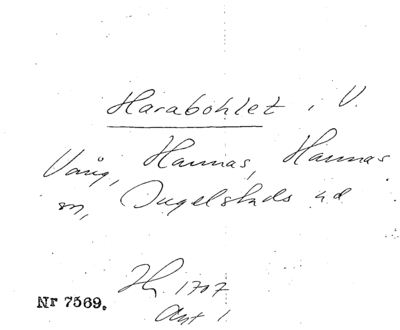 Harabohlet i V.
Vång, Hannas, Hannas
sn, Ingelstads hd
Jb. 1707
Ant 1.
Nr 7569.